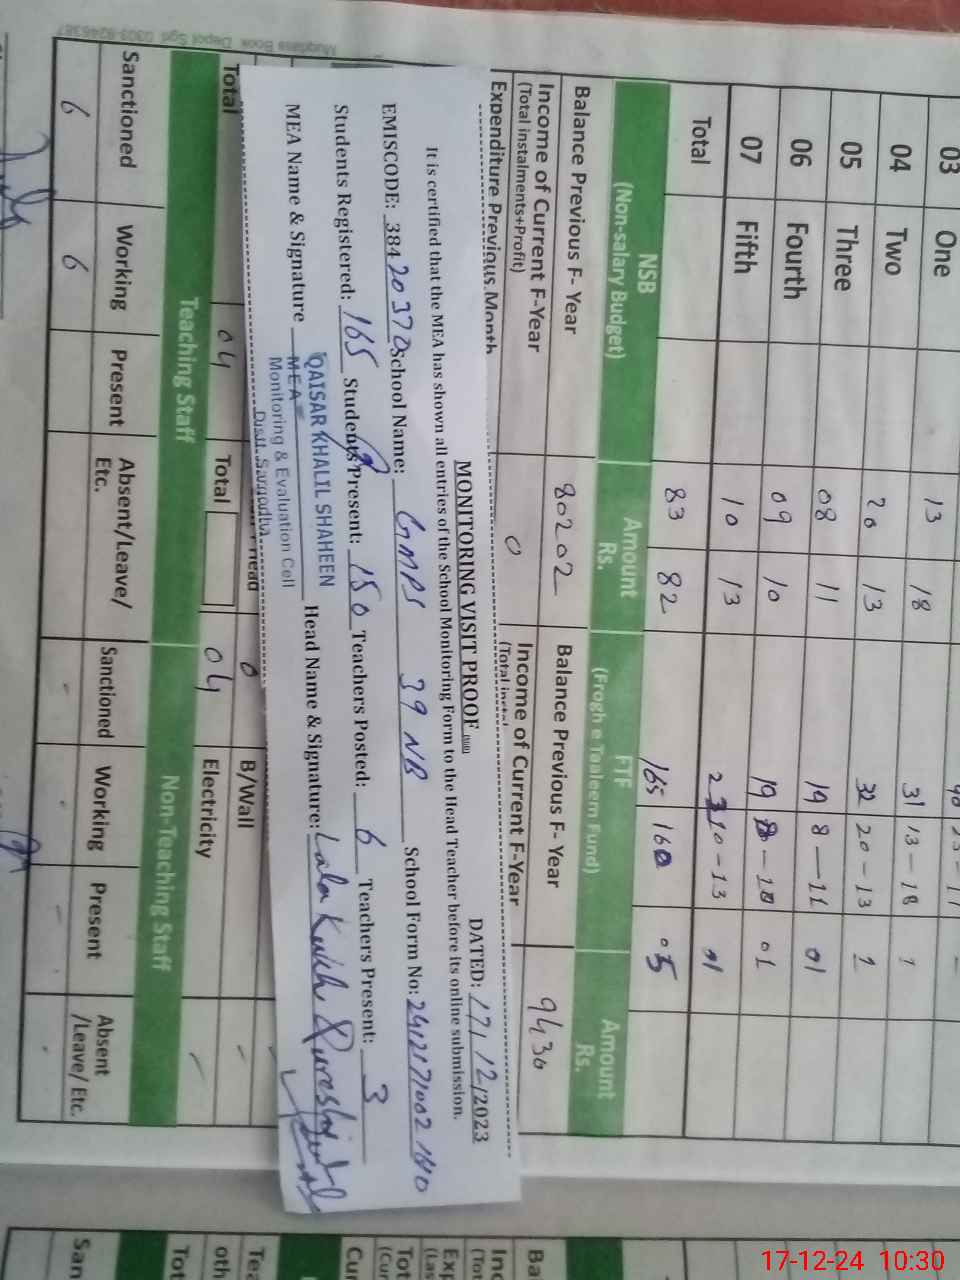 03 One 13 18
04 Two 31 13-18
05 Three 20 13 32 20-13
06 Fourth 08 11 19 8-11 01
07 Fifth 09 10 19 01
Total 10 13 10-13
83 82 165 160 05
NSB
(Non-salary Budget)
Amount
Rs.
FTF
(Frogh e Taaleem Fund)
Amount
Rs.
Balance Previous F- Year 80202 Balance Previous F- Year 9430
Income of Current F-Year
(Total instalments+Profit) 0 Income of Current F-Year
Expenditure Previous Month
MONITORING VISIT PROOF DATED: 17/12/2023
It is certified that the MEA has shown all entries of the School Monitoring Form to the Head Teacher before its online submission.
EMISCODE: 38420370 School Name: GMPS 39 NB School Form No:
Students Registered: 165 Students Present: 150 Teachers Posted: 6 Teachers Present: 3
MEA Name & Signature Head Name & Signature:
QAISAR KHALIL SHAHEEN
MEA
Monitoring & Evaluation Cell
Distt. Sargodha
Total
B/Wall
04 Total 04 Electricity
Teaching Staff Non-Teaching Staff
Sanctioned Working Present Absent/Leave/
Etc. Sanctioned Working Present Absent
/Leave/ Etc.
6 6
Muqdass Book Depot Sgd.
17-12-24 10:30